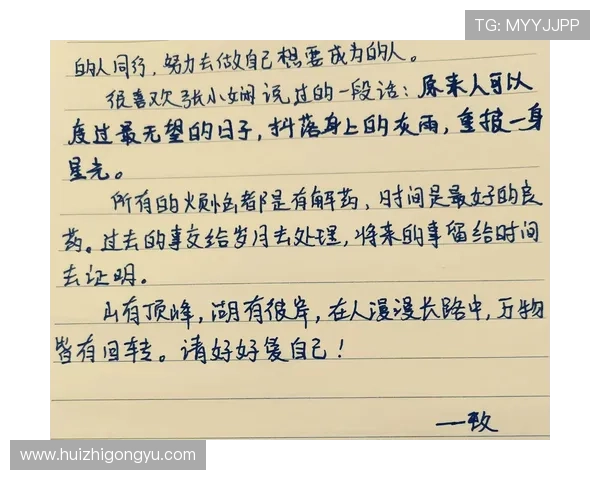 TG: MYYJJPP
的人同行，努力去做自己想要成为的人。
很喜欢张小娴说过的一段话：原来人可以
度过最无望的日子，抖落身上的灰雨，重披一身
星光。
所有的烦恼都是有解药，时间是最好的良
药。过去的事交给岁月去处理，将来的事留给时间
去证明。
山有顶峰，湖有彼岸，在人漫漫长路中，万物
皆有回转。请好好爱自己！
www.huizhigongyu.com